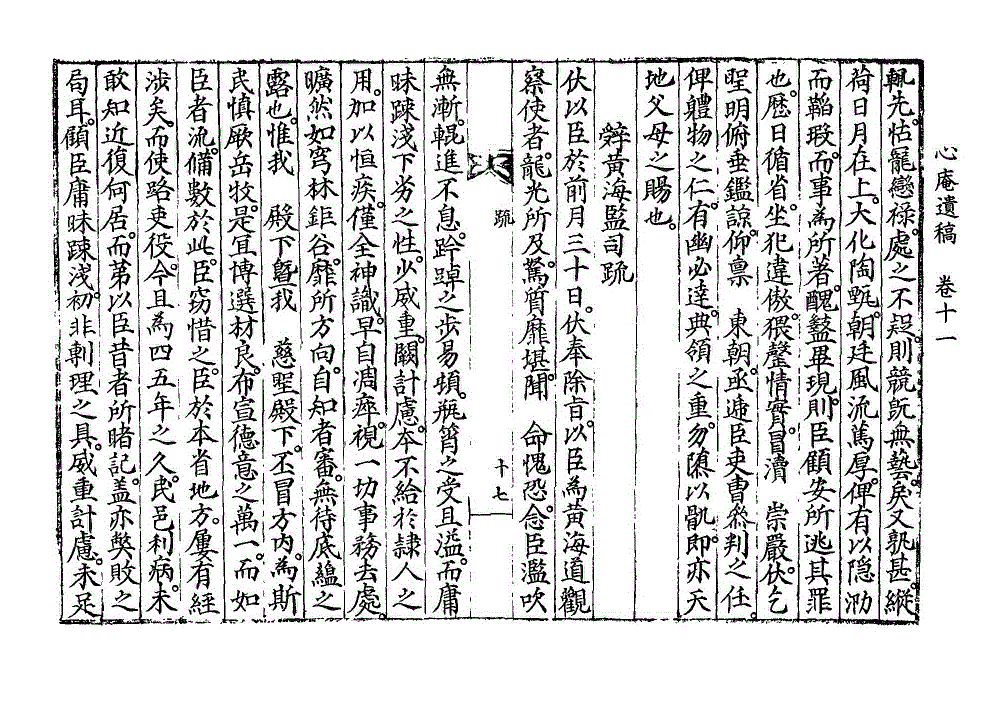 心庵遺稿　卷十一
輒先。怙寵戀祿。處之不疑。則競旣無藝。戾又孰甚。縱
荷日月在上。大化陶甄。朝廷風流篤厚。俾有以隱泐
而韜瑕。而事爲所著。醜盭畢現。則臣顧安所逃其罪
也。歷日循省。坐犯違傲。猥罄情實。冒瀆　崇嚴。伏乞
聖明俯垂鑑諒。仰稟　東朝。亟遞臣吏曹參判之任。
俾體物之仁。有幽必達。典領之重。勿隳以骩。卽亦天
地父母之賜也。
辭黃海監司疏
伏以臣於前月三十日。伏奉除旨。以臣爲黃海道觀
察使者。龍光所及。駑質靡堪。聞　命愧恐。念臣濫吹
疏　十七
無漸。輥進不息。跉踔之步易頃。甁筲之受且溢。而庸
昧踈淺。下劣之性。少威重。闕計慮。本不給於隷人之
用。加以恒疾。僅全神識。早自凋瘁。視一切事務去處。
曠然如穹林鉅谷。靡所方向。自知者審。無待底蘊之
露也。惟我　殿下曁我　慈聖殿下。丕冒方內。爲斯
民愼厥岳牧。是宜博選材良。布宣德意之萬一。而如
臣者流。備數於此。臣竊惜之。臣於本省地方。屢有經
涉矣。而使路吏役。今且爲四五年之久。民邑利病。未
敢知近復何居。而第以臣昔者所睹記。蓋亦獘敗之
局耳。顧臣庸昧踈淺。初非剸理之具。威重計慮。未足